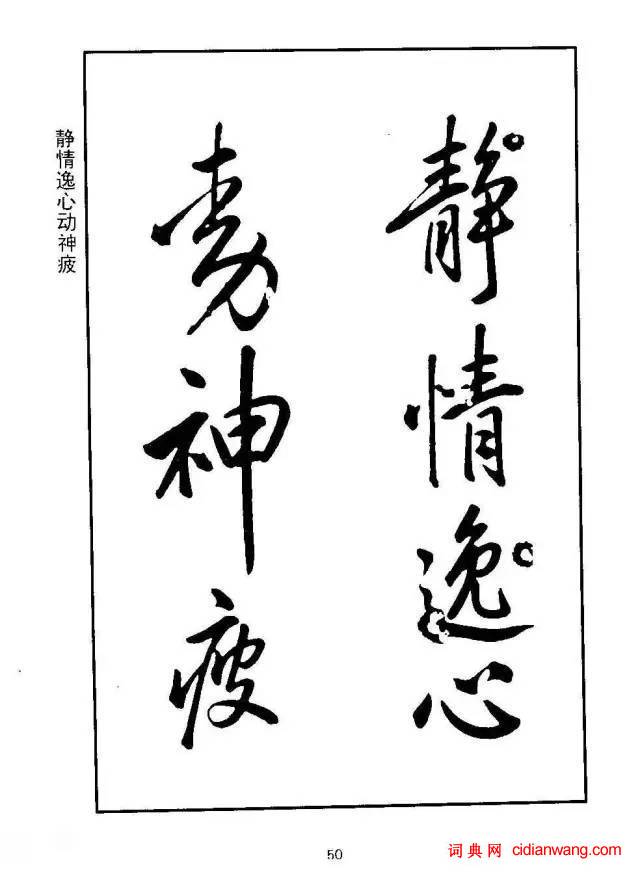 静情逸心
動神疲
静情逸心动神疲
50
词典网 cidianwang.com